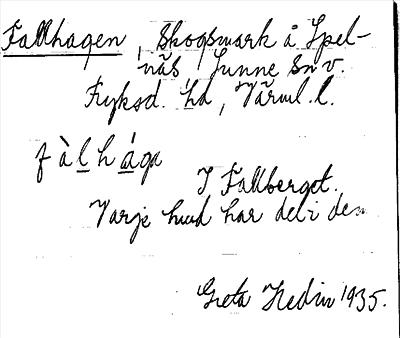 Fallhagen, Skogsmark å Spel-
näs, Sunne Sn v.
Fryksd. hd, Värml. l.
fàlhága
I Fallberget.
Varje hud har del i den
Greta Hedin 1935.